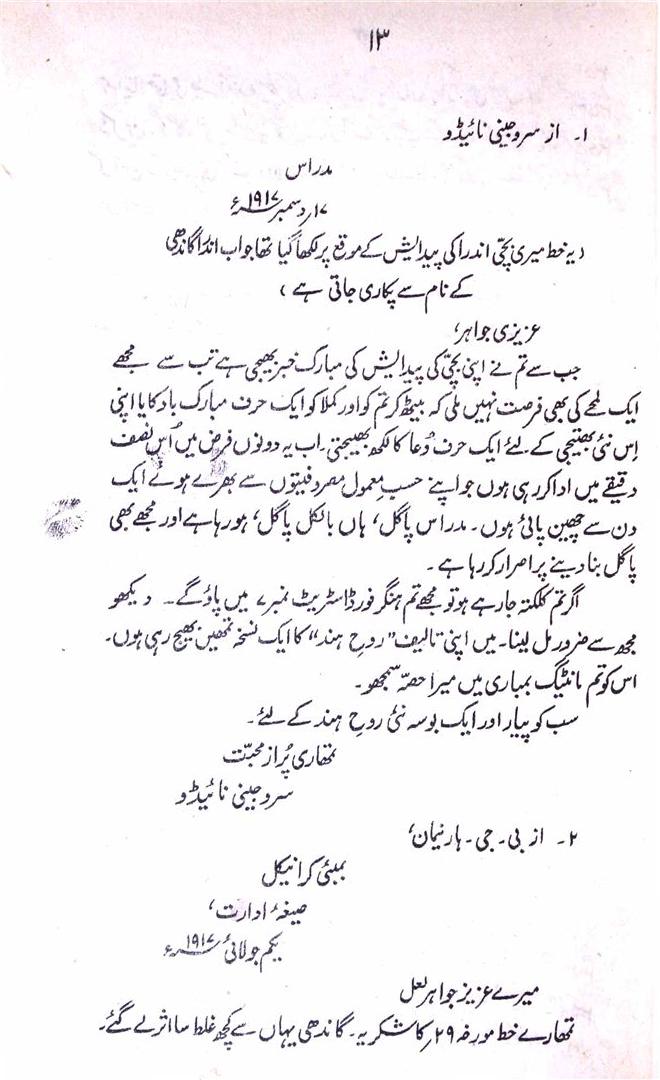 ۱۳
۱۔ از سروجینی نائیڈو
مدراس
۱۷ دسمبر ۱۹۱۷ء
(یہ خط میری بچی اندرا کی پیدایش کے موقع پر لکھا گیا تھا جو اب اندرا گاندھی
کے نام سے پکاری جاتی ہے)
عزیزی جواہر،
جب سے تم نے اپنی بچی کی پیدایش کی مبارک خبر بھیجی ہے تب سے مجھے
ایک لمحے کی بھی فرصت نہیں ملی کہ بیٹھ کر تم کو اور کملا کو ایک حرف مبارک باد کا یا اپنی
اِس نئی بھتیجی کے لئے ایک حرف دُعا کا لکھ بھیجتی۔ اب یہ دونوں فرض میں اُس نصف
دقیقے میں ادا کر رہی ہوں جو اپنے حسب معمول مصروفیتوں سے بھرے ہوئے ایک
دن سے چھین پائی ہوں۔ مدراس پاگل، ہاں بالکل پاگل، ہو رہا ہے اور مجھے بھی
پاگل بنا دینے پر اصرار کر رہا ہے۔
اگر تم کلکتہ جا رہے ہو تو مجھے تم ہنگر فورڈ اسٹریٹ نمبر ۷ میں پاؤ گے۔ دیکھو
مجھ سے ضرور مل لینا۔ میں اپنی تالیف "روحِ ہند" کا ایک نسخہ تمھیں بھیج رہی ہوں۔
اس کو تم مانٹیگ بمباری میں میرا حصّہ سمجھو۔
سب کو پیار اور ایک بوسہ نئی روحِ ہند کے لئے۔
تمھاری پُر از محبّت
سروجینی نائیڈو
۲۔ از بی۔ جی۔ ہارنیمان،
بمبئی کرانیکل
صیغۂ ادارت،
یکم جولائی ۱۹۱۷ء
میرے عزیز جواہر لعل
تمھارے خط مورخہ ۲۹ کا شکریہ۔ گاندھی یہاں سے کچھ غلط سا اثر لے گئے۔